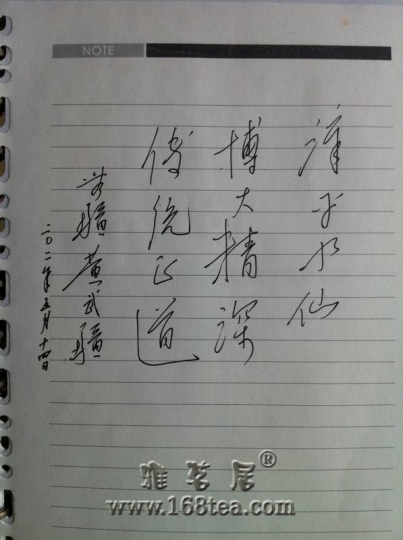 NOTE
漳平水仙
博大精深
传统正道
黄武
二〇一二年五月十四日
雅茗居®
www.168tea.com